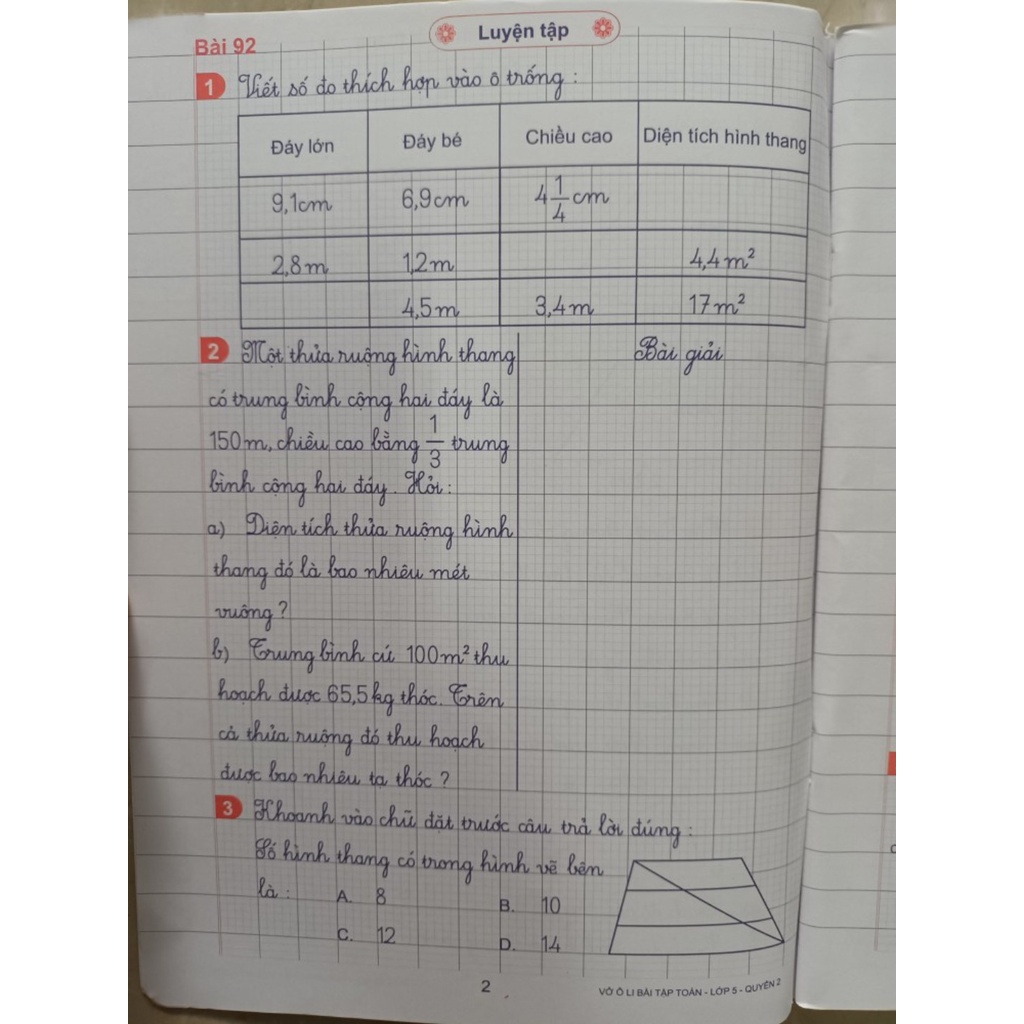 Luyện tập
Bài 92
1 Viết số đo thích hợp vào ô trống :
Đáy lớn Đáy bé Chiều cao Diện tích hình thang
9,1cm 6,9cm 4 1/4 cm
2,8m 1,2m 4,4m²
4,5m 3,4m 17m²
2 Một thửa ruộng hình thang
có trung bình cộng hai đáy là
150m, chiều cao bằng 1/3 trung
bình cộng hai đáy. Hỏi :
a) Diện tích thửa ruộng hình
thang đó là bao nhiêu mét
vuông ?
b) Trung bình cứ 100m² thu
hoạch được 65,5kg thóc. Trên
cả thửa ruộng đó thu hoạch
được bao nhiêu tạ thóc ?
Bài giải
3 Khoanh vào chữ đặt trước câu trả lời đúng :
Số hình thang có trong hình vẽ bên
là : A. 8 B. 10
C. 12 D. 14
2
VỞ Ô LI BÀI TẬP TOÁN - LỚP 5 - QUYỂN 2